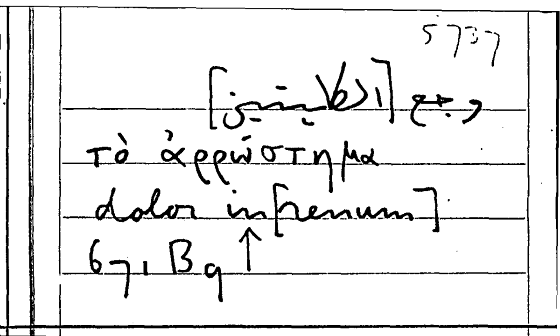 5737
وجع [الكليتين]
τὸ ἀρρώστημα
dolor in [renum]
67, B 9 ↑